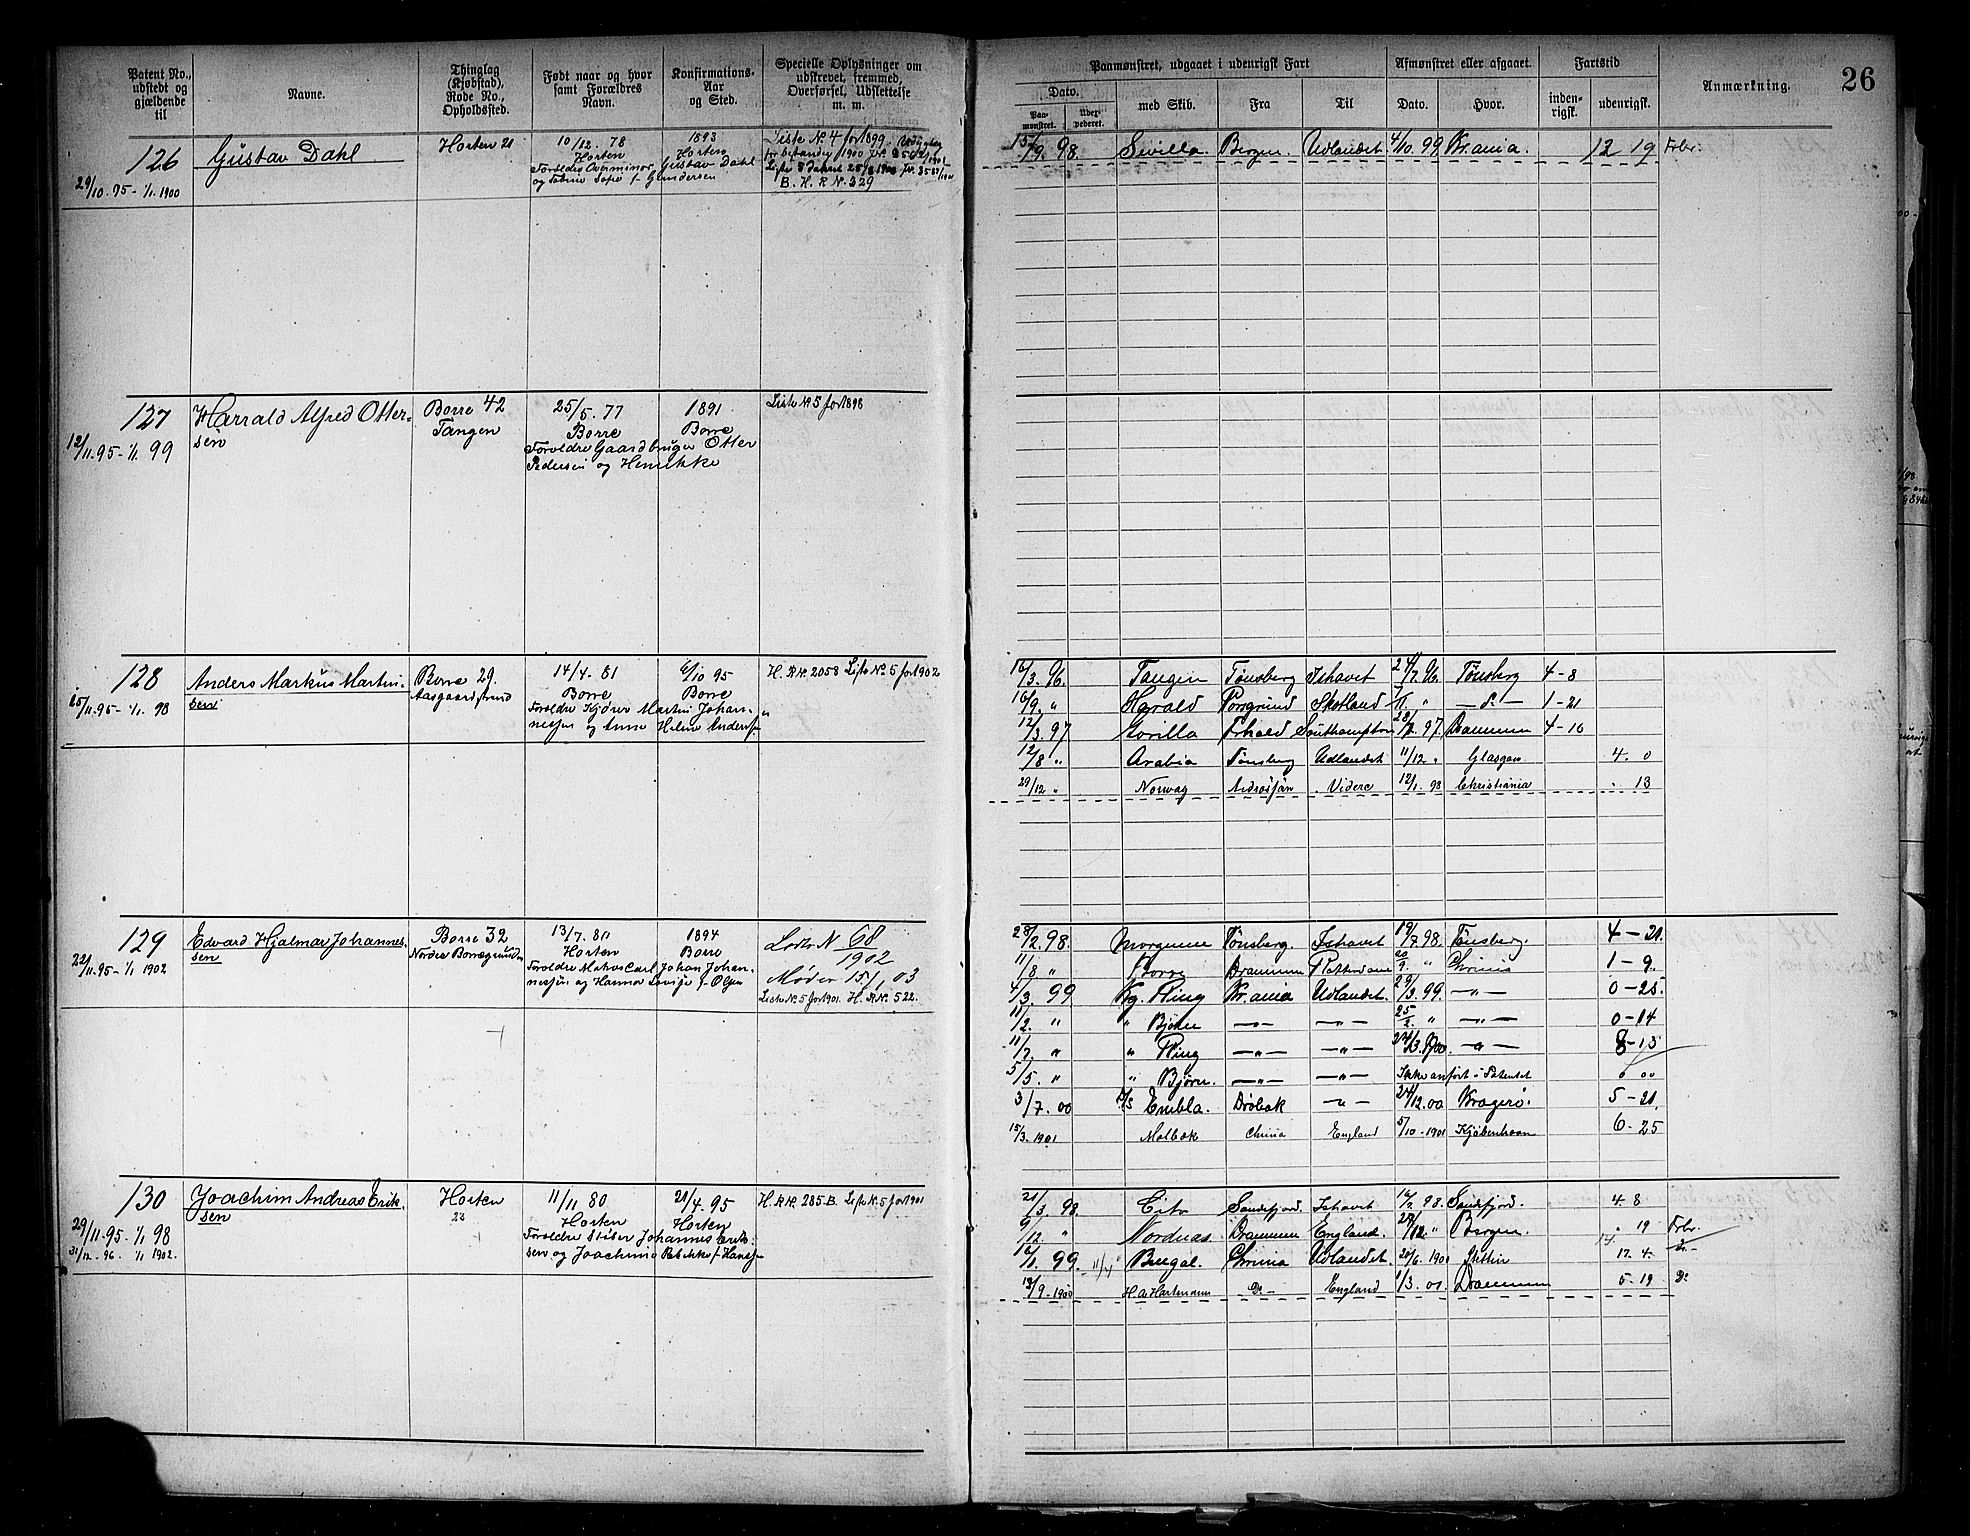 Patent No., udstedt og gjældende til
Navne.
Thinglag (Kjøbstad), Rode No., Opholdssted.
Født naar og hvor samt Forældres Navn.
Konfirmations-Aar og Sted.
Specielle Oplysninger om udskrevet, fremmed, Overførsel, Udslettelse m. m.
Paamønstret, udgaaet i udenrigsk Fart
Dato.
Paa-mønstret.
Uder-pederet.
med Skib.
Fra
Til
Afmønstret eller afgaaet.
Dato.
Hvor.
Fartstid
inden-rigsk.
udenrigsk.
Anmærkning.
26
126 Gustav Dahl Horten 21 10/12. 78 1893
Horten Horten
Forældre Overminør Gustav Dahl
og Sofie f. Gundersen
29/10. 95 - 1/1. 1900
Liste No. 4 for 1899
B. H. R No. 329
15/9. 98. Sevilla. Bergen. Udlandet 4/10. 99 Kr.ania. 12 19 Forbr.
127 Harrald Alfred Otter-
sen
Borre 42
Tangen
25/5. 77 1891
Borre Borre
Forældre Gaardbruger Otter
Pedersen og Henrikke
12/11. 95 - 1/1. 99
Liste No. 5 for 1898
128 Anders Markus Martin-
sen
Borre 29.
Aasgaardstrand
14/4. 81 6/10 95
Borre Borre
Forældre Kjører Martin Johan-
nessen og Anne Heline Anders f
15/11. 95 - 1/1. 98
H. R No. 2058 Liste No. 5 for 1902
16/3. 96. Tangen Tønsberg Ishavet 24/7. 96. Tønsberg 4-8
16/9. " Harald Porsgrund Skotland " 1-21
12/3. 97 Southampton 97. Drammen 4-16
12/8 " Arabia Tønsberg Udlandet 11/12 " Glasgow 4. 0
29/12 " Norway Videre 12/1. 98 Christiania 13
129 Edvard Hjalmar Johannes-
sen
Borre 32
Nordre Borregrunden
13/7. 80 1894
Horten Borre
Forældre Matros Carl Johan Johan-
nessen og Hanna Lovise f. Olsen
22/11. 95 - 1/1 1902
Liste No 68
1902
Møder 15/1. 03
Liste No. 5 for 1901. H. R No. 522.
28/2. 98. Morgenen Tønsberg. Ishavet 19/7. 98. Tønsberg. 4-21.
11/8 " Borre Drammen Rotterdam 20/9. " Chrinia 1-9.
4/3. 99 Kg. Ring Kr.ania Udlandet. 29/3. 99. -"- 0-25.
11/2. " " Bjørn -"- -"- 25/2. " -"- 0-14
11/7. " " Ring -"- -"- -"- 8-15
5/5. " " Bjørn. -"- -"- Ikke anført i Patentet 0 00
3/7. 00 Embla. Drøbak -"- 24/12. 00 Kragerø. 5-21.
15/3. 1901 Molbak Chrinia England 5/10 - 1901 Kjøbenhavn 6-25
130 Joachim Andreas Erik-
sen
Horten
22
11/11 80 21/4. 95
Horten Horten
Forældre Støber Johannes Erik-
sen og Joachima Rebekke f. Hansen
29/11. 95 - 1/1 98
31/12. 96. 1/1 1902.
H. R No. 285-B. Liste No. 5 for 1901
21/3. 98. Cito Sandefjord. Ishavet 98. Sandefjord. 4. 8
9/12. " Nordnæs. Drammen England. " Bergen. 19 Forbr.
16/1. 99. Bengal. Chrinia Udlandet. 20/6. 1900 Stettin 17. 4. D-
13/9. 1900 H. A. Hartmann D- England 1/3. 01. Drammen 5-19 Do